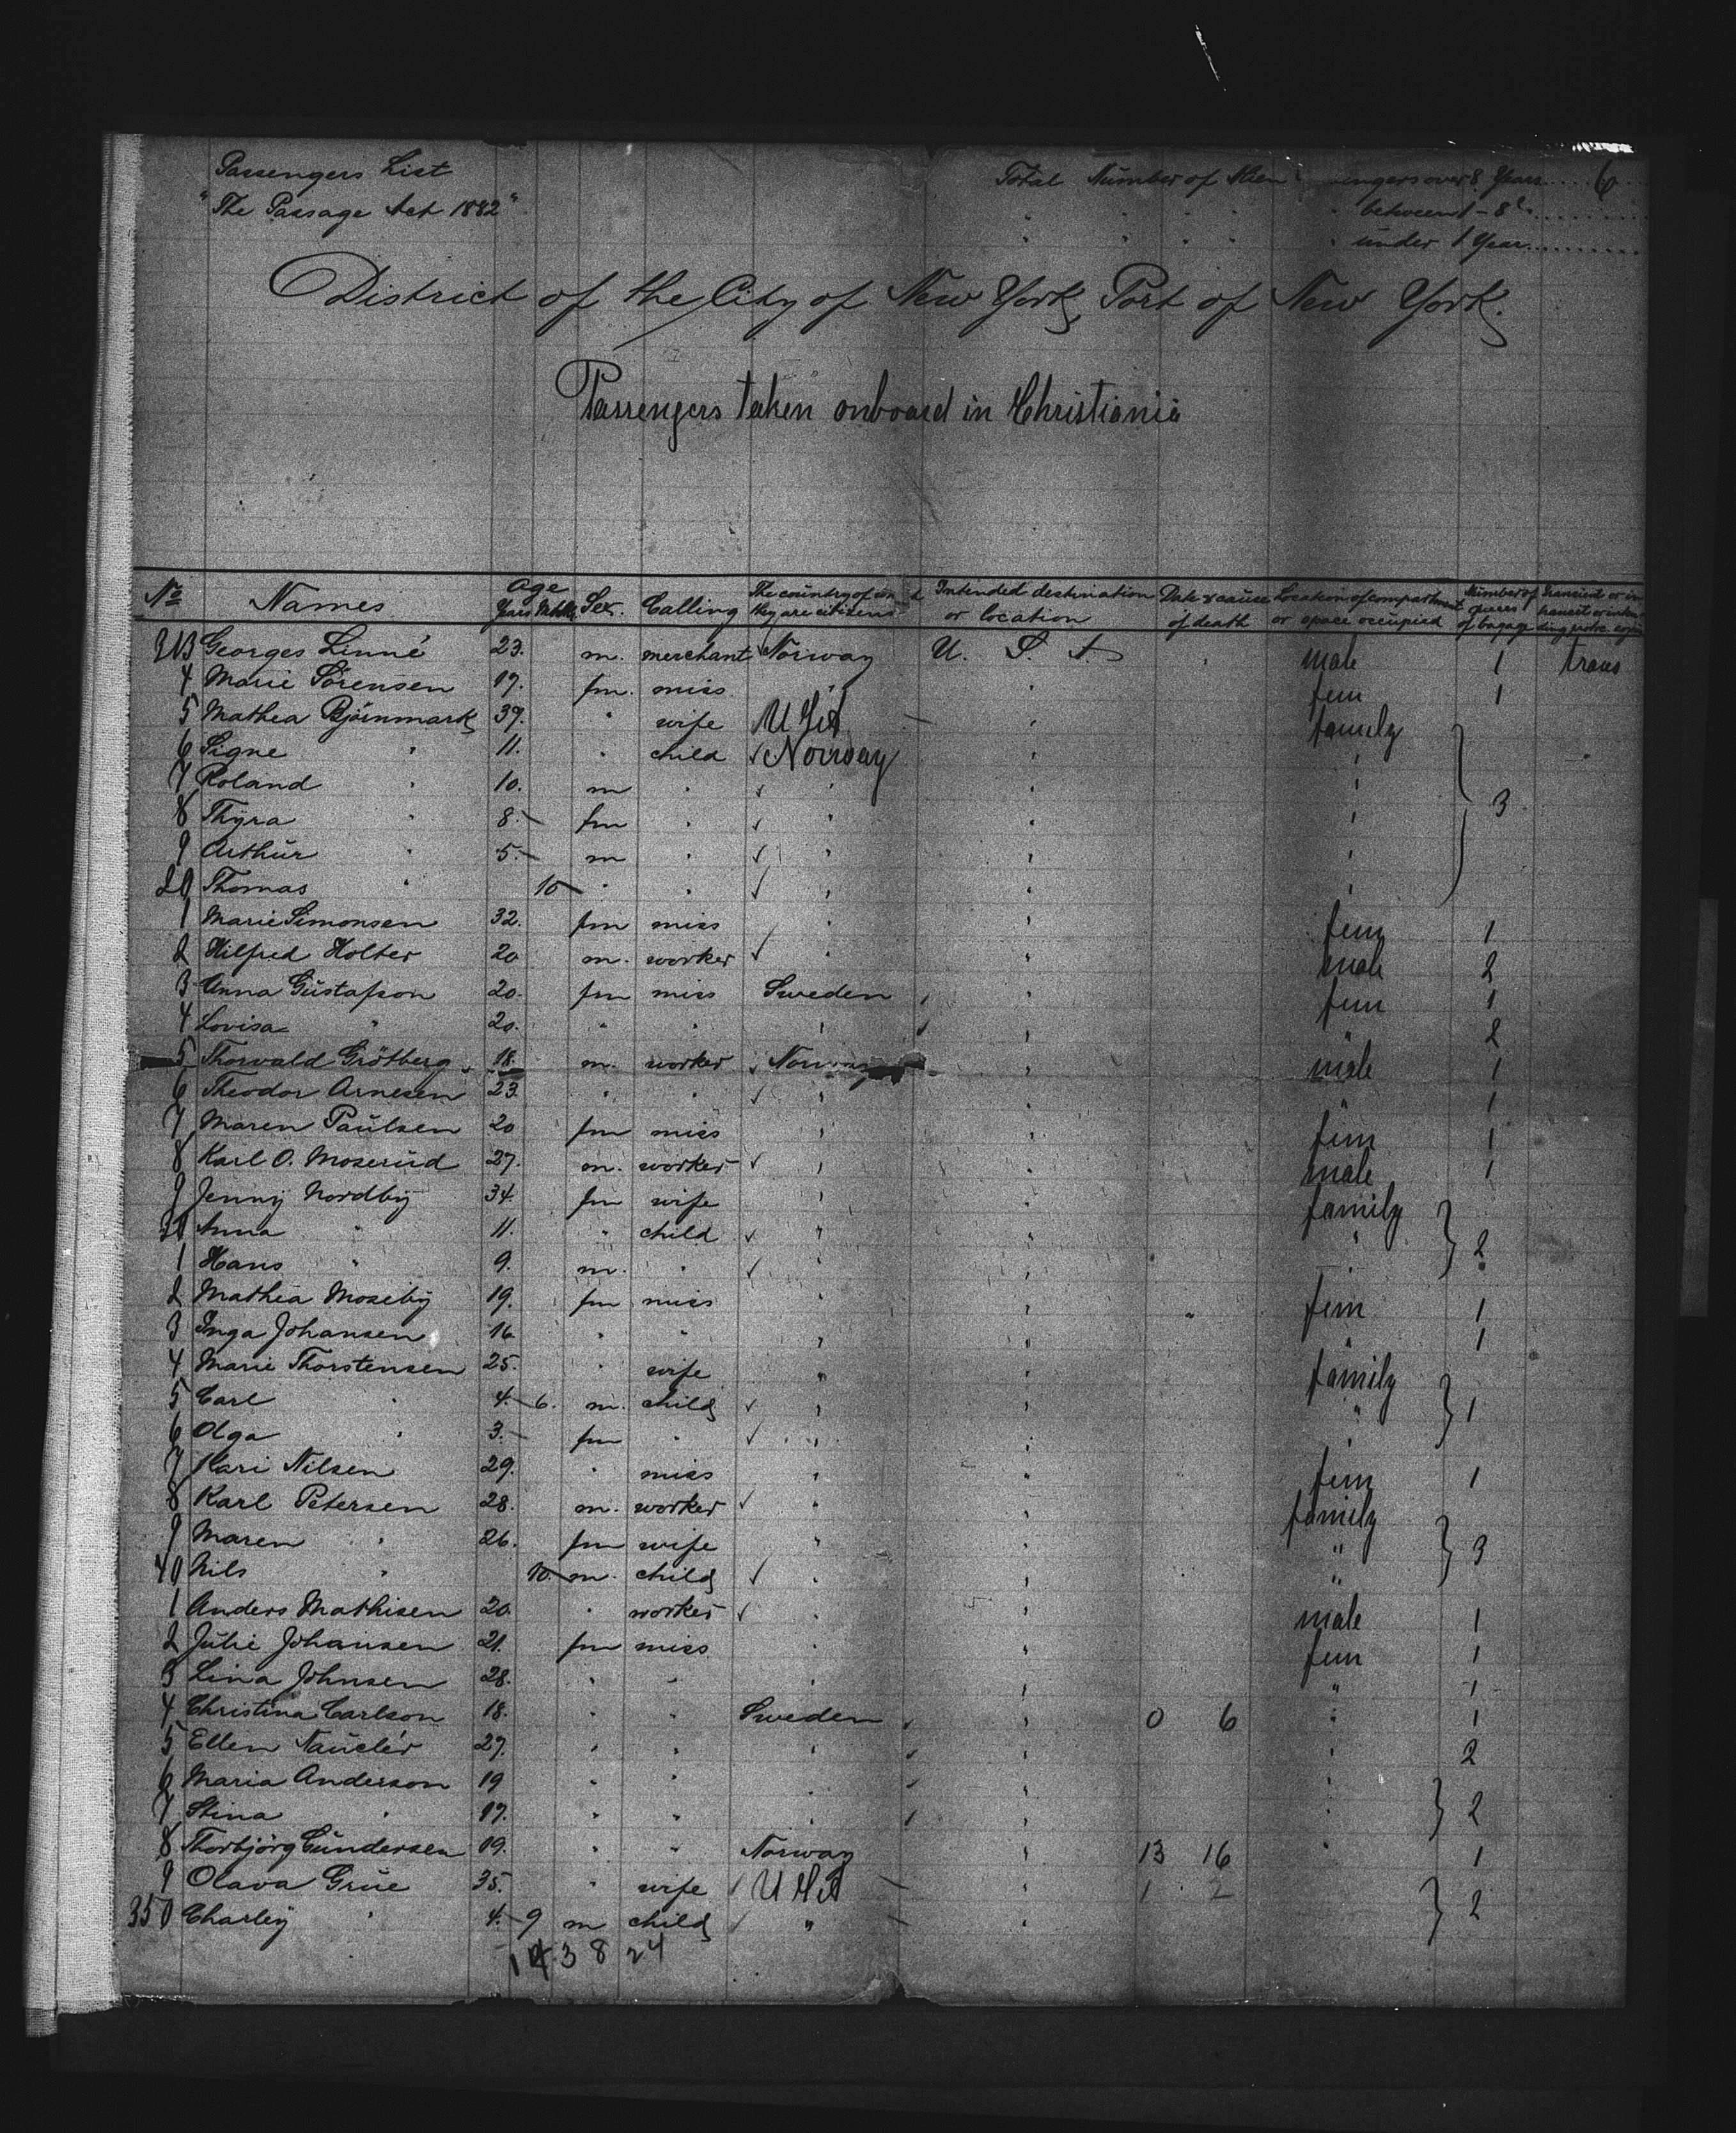 Passengers List
"The Passage Act 1882"
Total Number of Alien engers over 8 Years.... 6
" " " " " between 1-8 "........
" " " " " under 1 Year........
District of the City of New York, Port of New York.
Passengers taken onboard in Christiania
No Names Age Years Mths. Sex. Calling The country of they are citizens Intended destination or location Date & cause of death Location of compartment or space occupied Number of pieces of bagage Transient or in transit or
313 Georges Linné 23. m. merchant Norway U. S. A. male 1 trans
4 Marie Sörensen 19. fm. miss " fem 1
5 Mathea Björnmark 39. " wife USA — " family
6 Signe " 11. " child √ Norway " "
7 Roland " 10. m " √ " " "
8 Thyra " 8.— fm " √ " " " 3
9 Arthür " 5.— m " √ " " "
20 Thomas " 10— " " √ " " "
1 Marie Simonsen 32. fm miss " " fem 1
2 Hilfred Holter 20 m. worker √ " " male 2
3 Anna Güstafson 20. fm miss Sweden " fem 1
4 Lovisa " 20. " " " " " 2
5 Thorvald Grötberg 18. m. worker √ Norway " male 1
6 Theodor Arnesen 23. " " √ " " " 1
7 Maren Paülsen 20 fm miss " " fem 1
8 Karl O. Moserüd 27. m. worker √ " " male 1
9 Jenny Nordby 34. fm wife " " family
30 Anna " 11. " child √ " " " 2
1 Hans " 9. m. " √ " " "
2 Mathea Moseby 19. fm miss " " fem 1
3 Inga Johansen 16 " " " " " 1
4 Marie Thorstensen 25. " wife " " family
5 Carl " 4.— 6. m. child √ " " " 1
6 Olga " 3.— fm " √ " " "
7 Kari Nilsen 29. " miss " " fem 1
8 Karl Petersen 28. m. worker √ " " family
9 Maren " 26. fm wife " " " 3
40 Nils " 10.— m. child √ " " "
1 Anders Mathisen 20. " worker √ " " male 1
2 Jülie Johansen 21. fm miss " " fem 1
3 Lina Johnsen 28. " " " " " 1
4 Christina Carlson 18. " " Sweden " 0 6 " 1
5 Ellen Nauclér 27. " " " " " 2
6 Maria Anderson 19 " " " " "
7 Stina " 17. " " " " " 2
8 Thorbjörg Gündersen 19. " " Norway " 13 16 " 1
9 Olava Grüe 35. " wife √ USA — " 1 2
350 Charley " 4.— 9 m child √ " — " 2
14 3 8 24